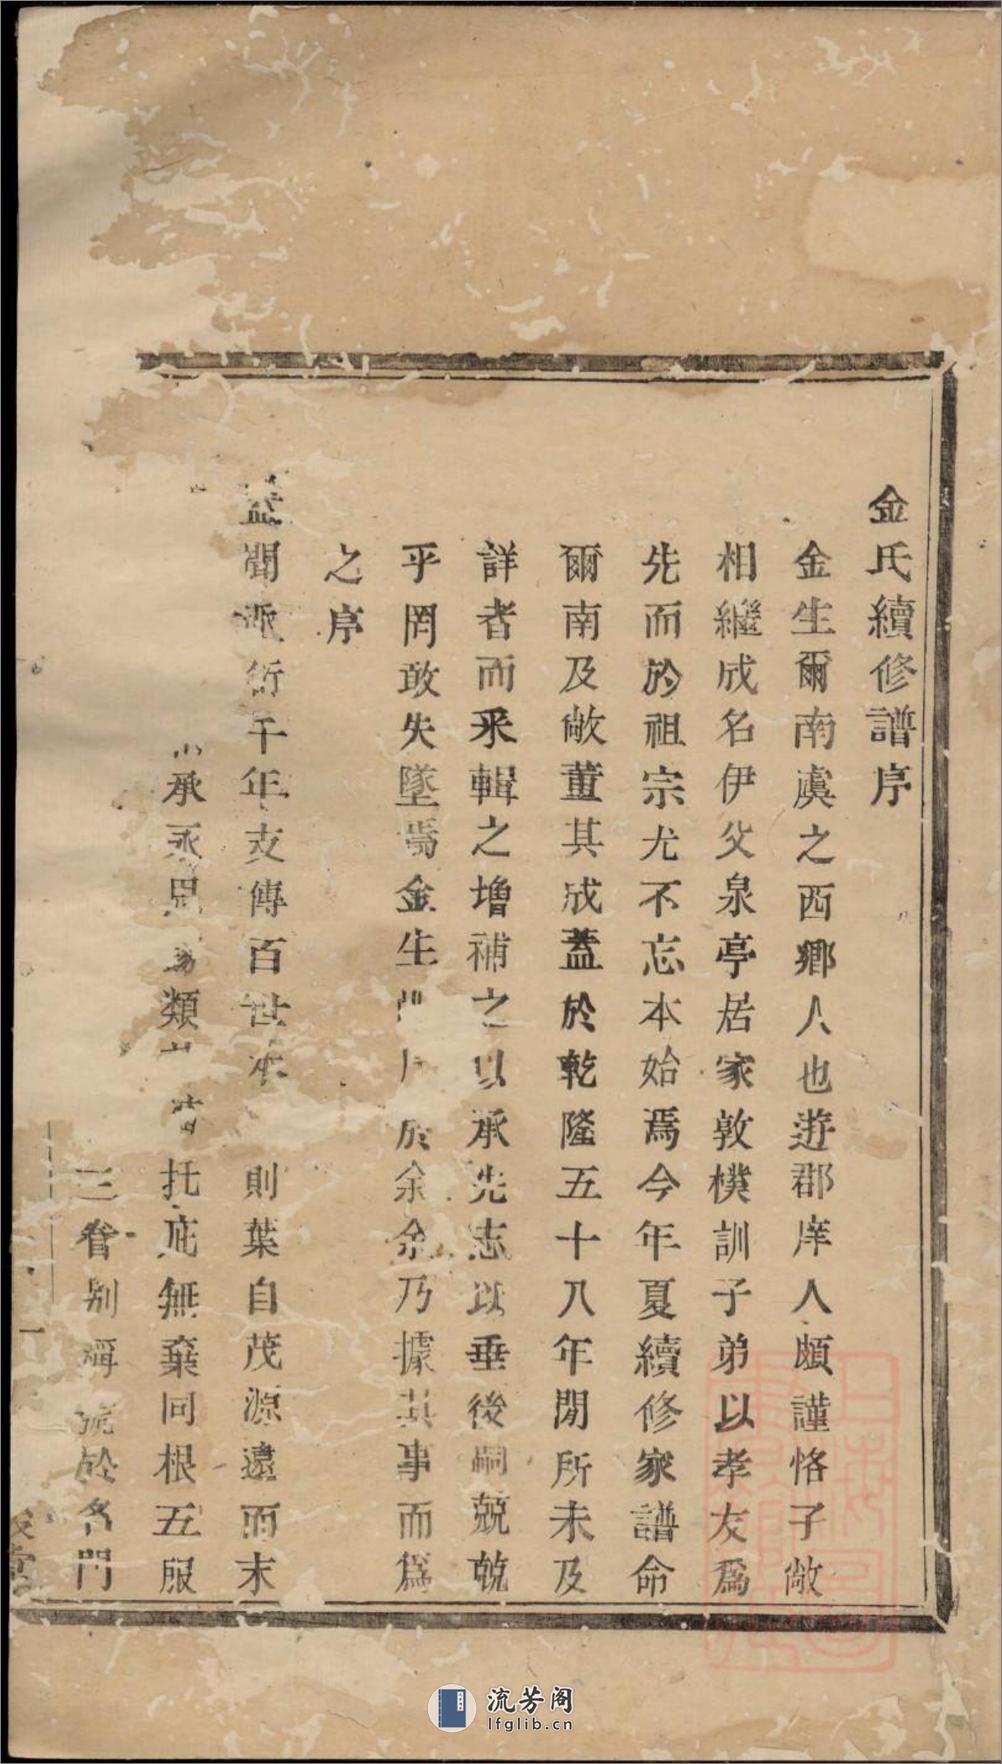 金氏續修譜序
金生爾南虞之西鄉人也遊郡庠人頗謹恪子敞
相繼成名伊父泉亭居家敦樸訓子弟以孝友為
先而於祖宗尤不忘本始焉今年夏續修家譜命
爾南及敞董其成蓋於乾隆五十八年閒所未及
詳者而采輯之增補之以承先志以垂後嗣兢兢
乎罔敢失墜焉金生 於余余乃據其事而爲
之序
蓋聞派衍千年支傳百世本 則葉自茂源遠而末
承 思 類 托庇無棄同根五服
三眷別稱 於名門
一
堂
流芳阁
lfglib.cn